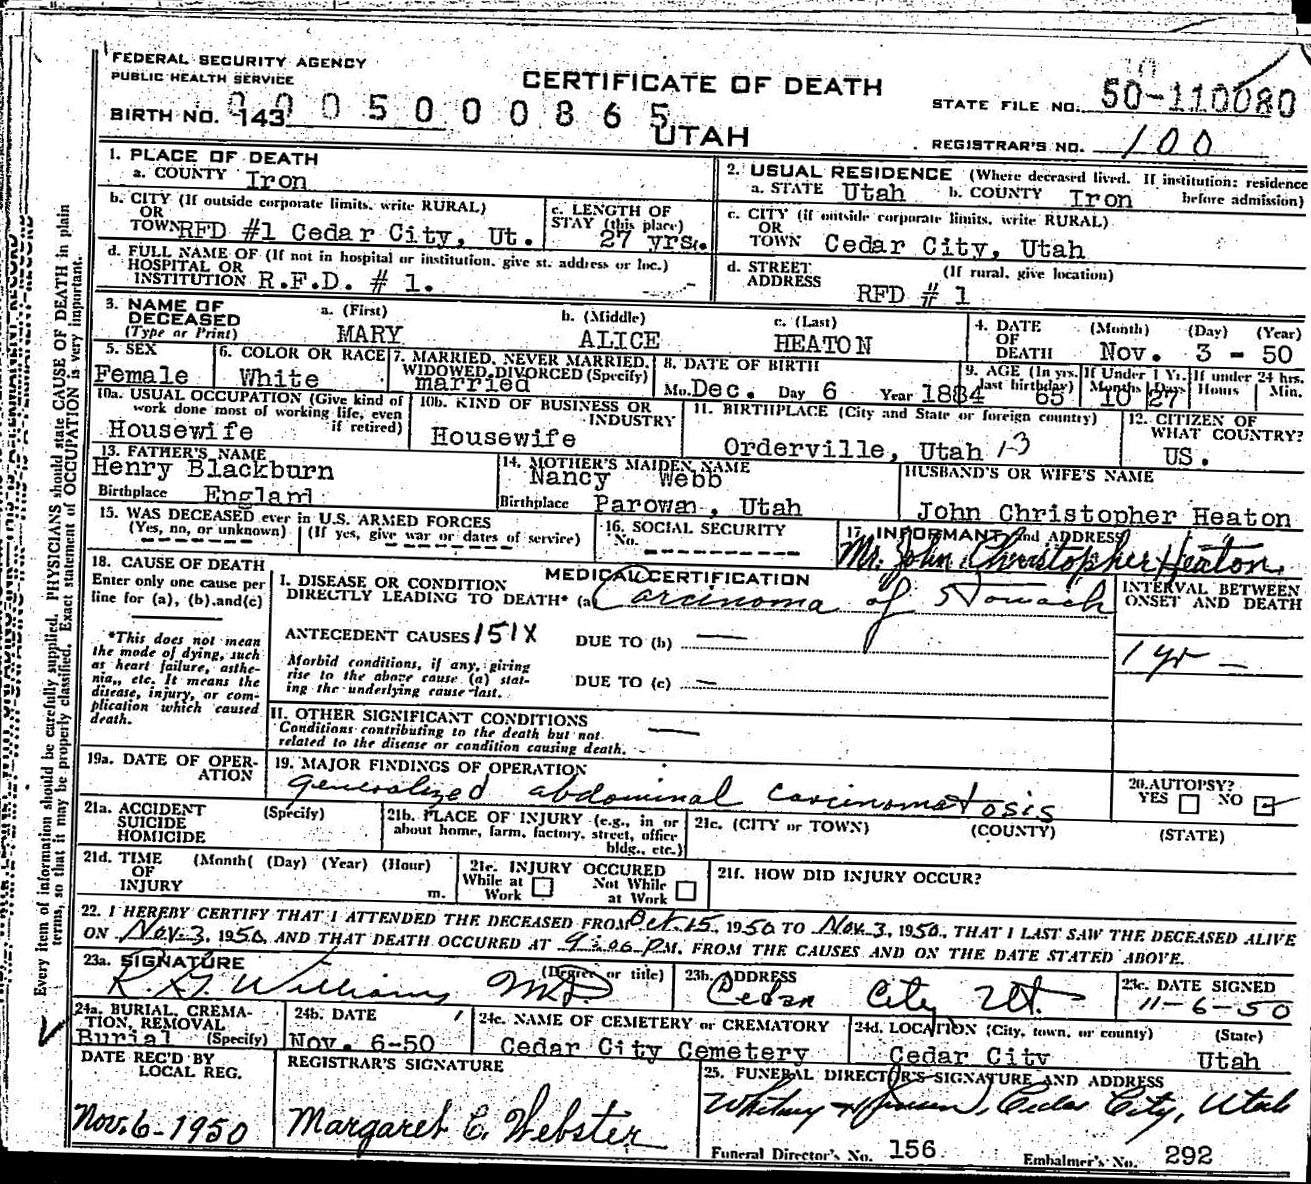 FEDERAL SECURITY AGENCY
PUBLIC HEALTH SERVICE
CERTIFICATE OF DEATH
STATE FILE NO. 50-110080
BIRTH NO. 143
0005000865
UTAH
REGISTRAR'S NO. 100
1. PLACE OF DEATH
a. COUNTY Iron
2. USUAL RESIDENCE (Where deceased lived. If institution: residence before admission)
a. STATE Utah b. COUNTY Iron
b. CITY (If outside corporate limits, write RURAL)
OR
TOWN RFD #1 Cedar City, Ut.
c. LENGTH OF STAY (this place)
27 yrs.
c. CITY (if outside corporate limits, write RURAL)
OR
TOWN Cedar City, Utah
d. FULL NAME OF (If not in hospital or institution, give st. address or loc.)
HOSPITAL OR
INSTITUTION R.F.D. # 1.
d. STREET ADDRESS (If rural, give location)
RFD # 1
3. NAME OF DECEASED
(Type or Print)
a. (First) b. (Middle) c. (Last)
MARY ALICE HEATON
4. DATE OF DEATH (Month) (Day) (Year)
Nov. 3 - 50
5. SEX
Female
6. COLOR OR RACE
White
7. MARRIED, NEVER MARRIED, WIDOWED, DIVORCED (Specify)
married
8. DATE OF BIRTH
Mo. Dec. Day 6 Year 1884
9. AGE (In yrs. last birthday) 65
If Under 1 Yr. Months 10 Days 27
If under 24 hrs. Hours Min.
10a. USUAL OCCUPATION (Give kind of work done most of working life, even if retired)
Housewife
10b. KIND OF BUSINESS OR INDUSTRY
Housewife
11. BIRTHPLACE (City and State or foreign country)
Orderville, Utah 13
12. CITIZEN OF WHAT COUNTRY?
US.
13. FATHER'S NAME
Henry Blackburn
Birthplace England
14. MOTHER'S MAIDEN NAME
Nancy Webb
Birthplace Parowan, Utah
HUSBAND'S OR WIFE'S NAME
John Christopher Heaton
15. WAS DECEASED ever in U.S. ARMED FORCES
(Yes, no, or unknown) (If yes, give war or dates of service)
16. SOCIAL SECURITY
No.
17. INFORMANT and ADDRESS
Mr. John Christopher Heaton
18. CAUSE OF DEATH
Enter only one cause per line for (a), (b), and (c)
*This does not mean the mode of dying, such as heart failure, asthenia, etc. It means the disease, injury, or complication which caused death.
MEDICAL CERTIFICATION
I. DISEASE OR CONDITION DIRECTLY LEADING TO DEATH* (a) Carcinoma of Stomach
INTERVAL BETWEEN ONSET AND DEATH
1 yr —
ANTECEDENT CAUSES 151X DUE TO (b) —
Morbid conditions, if any, giving rise to the above cause (a) stating the underlying cause last.
DUE TO (c) —
II. OTHER SIGNIFICANT CONDITIONS
Conditions contributing to the death but not related to the disease or condition causing death. —
19a. DATE OF OPERATION
19. MAJOR FINDINGS OF OPERATION
generalized abdominal carcinomatosis
20. AUTOPSY?
YES NO
21a. ACCIDENT SUICIDE HOMICIDE (Specify)
21b. PLACE OF INJURY (e.g., in or about home, farm, factory, street, office bldg., etc.)
21c. (CITY or TOWN) (COUNTY) (STATE)
21d. TIME OF INJURY (Month( (Day) (Year) (Hour)
m.
21e. INJURY OCCURED
While at Work Not While at Work
21f. HOW DID INJURY OCCUR?
22. I HEREBY CERTIFY THAT I ATTENDED THE DECEASED FROM Oct. 15, 1950 TO Nov. 3, 1950, THAT I LAST SAW THE DECEASED ALIVE
ON Nov. 3, 1950, AND THAT DEATH OCCURED AT 9:00 P.M. FROM THE CAUSES AND ON THE DATE STATED ABOVE.
23a. SIGNATURE (Degree or title)
R. G. Williams M.D.
23b. ADDRESS
Cedar City Ut.
23c. DATE SIGNED
11-6-50
24a. BURIAL, CREMATION, REMOVAL (Specify)
Burial
24b. DATE
Nov. 6-50
24c. NAME OF CEMETERY or CREMATORY
Cedar City Cemetery
24d. LOCATION (City, town, or county) (State)
Cedar City Utah
DATE REC'D BY LOCAL REG.
Nov. 6-1950
REGISTRAR'S SIGNATURE
Margaret E. Webster
25. FUNERAL DIRECTOR'S SIGNATURE AND ADDRESS
Cedar City, Utah
Funeral Director's No. 156
Embalmer's No. 292
Every item of information should be carefully supplied. PHYSICIANS should state CAUSE OF DEATH in plain
terms, so that it may be properly classified. Exact statement of OCCUPATION is very important.